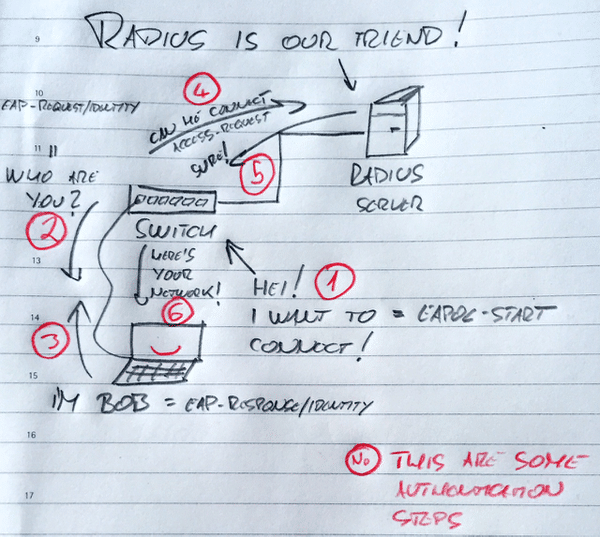 9
RADIUS IS OUR FRIEND!
10
EAP-REQUEST/IDENTITY
4
CAN HE CONNECT
ACCESS-REQUEST
SURE!
5
RADIUS
SERVER
11
WHO ARE
YOU?
2
SWITCH
13
HERE'S
YOUR
NETWORK!
6
HEI! 1
I WANT TO = EAPOL-START
CONNECT!
14
3
15
I'M BOB = EAP-RESPONSE/IDENTITY
16
No THIS ARE SOME
AUTHENTICATION
STEPS
17